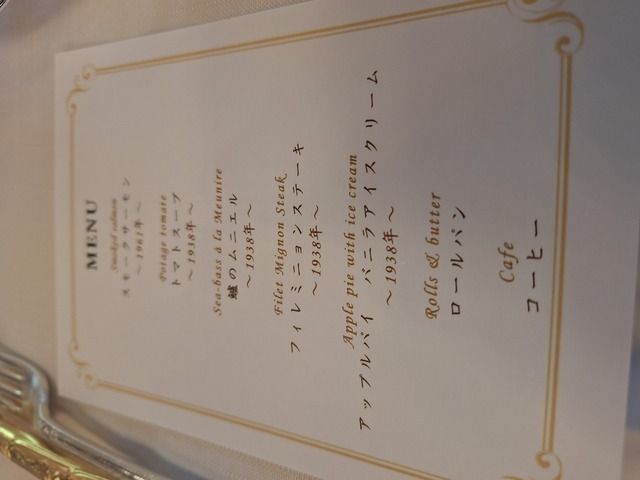 MENU
Smoked salmon
スモークサーモン
～1961年～
Potage tomate
トマトスープ
～1938年～
Sea-bass à la Meunire
鱸のムニエル
～1938年～
Filet Mignon Steak
フィレミニョンステーキ
～1938年～
Apple pie with ice cream
アップルパイ　バニラアイスクリーム
～1938年～
Rolls & butter
ロールパン
Cafe
コーヒー